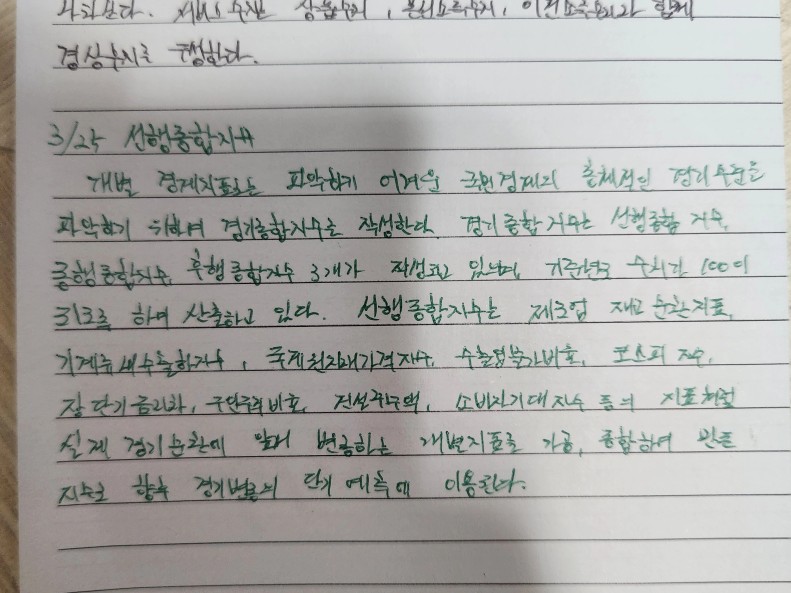 나타난다. 서비스 수지는 상품수지, 본원소득수지, 이전소득수지와 함께
경상수지를 구성한다.
3/25 선행종합지수
개별 경제지표로는 파악하기 어려운 국민경제의 총체적인 경기수준을
파악하기 위하여 경기종합지수를 작성한다. 경기종합지수는 선행종합지수,
동행종합지수, 후행종합지수 3개가 작성되고 있으며, 기준년도 수치가 100이
되도록 하여 산출하고 있다. 선행종합지수는 제조업 재고순환지표,
기계류내수출하지수, 국제원자재가격지수, 수출입물가비율, 코스피 지수,
장단기금리차, 구인구직비율, 건설수주액, 소비자기대지수 등의 지표처럼
실제 경기순환에 앞서 변동하는 개별지표를 가공, 종합하여 만든
지수로 향후 경기변동의 단기 예측에 이용된다.